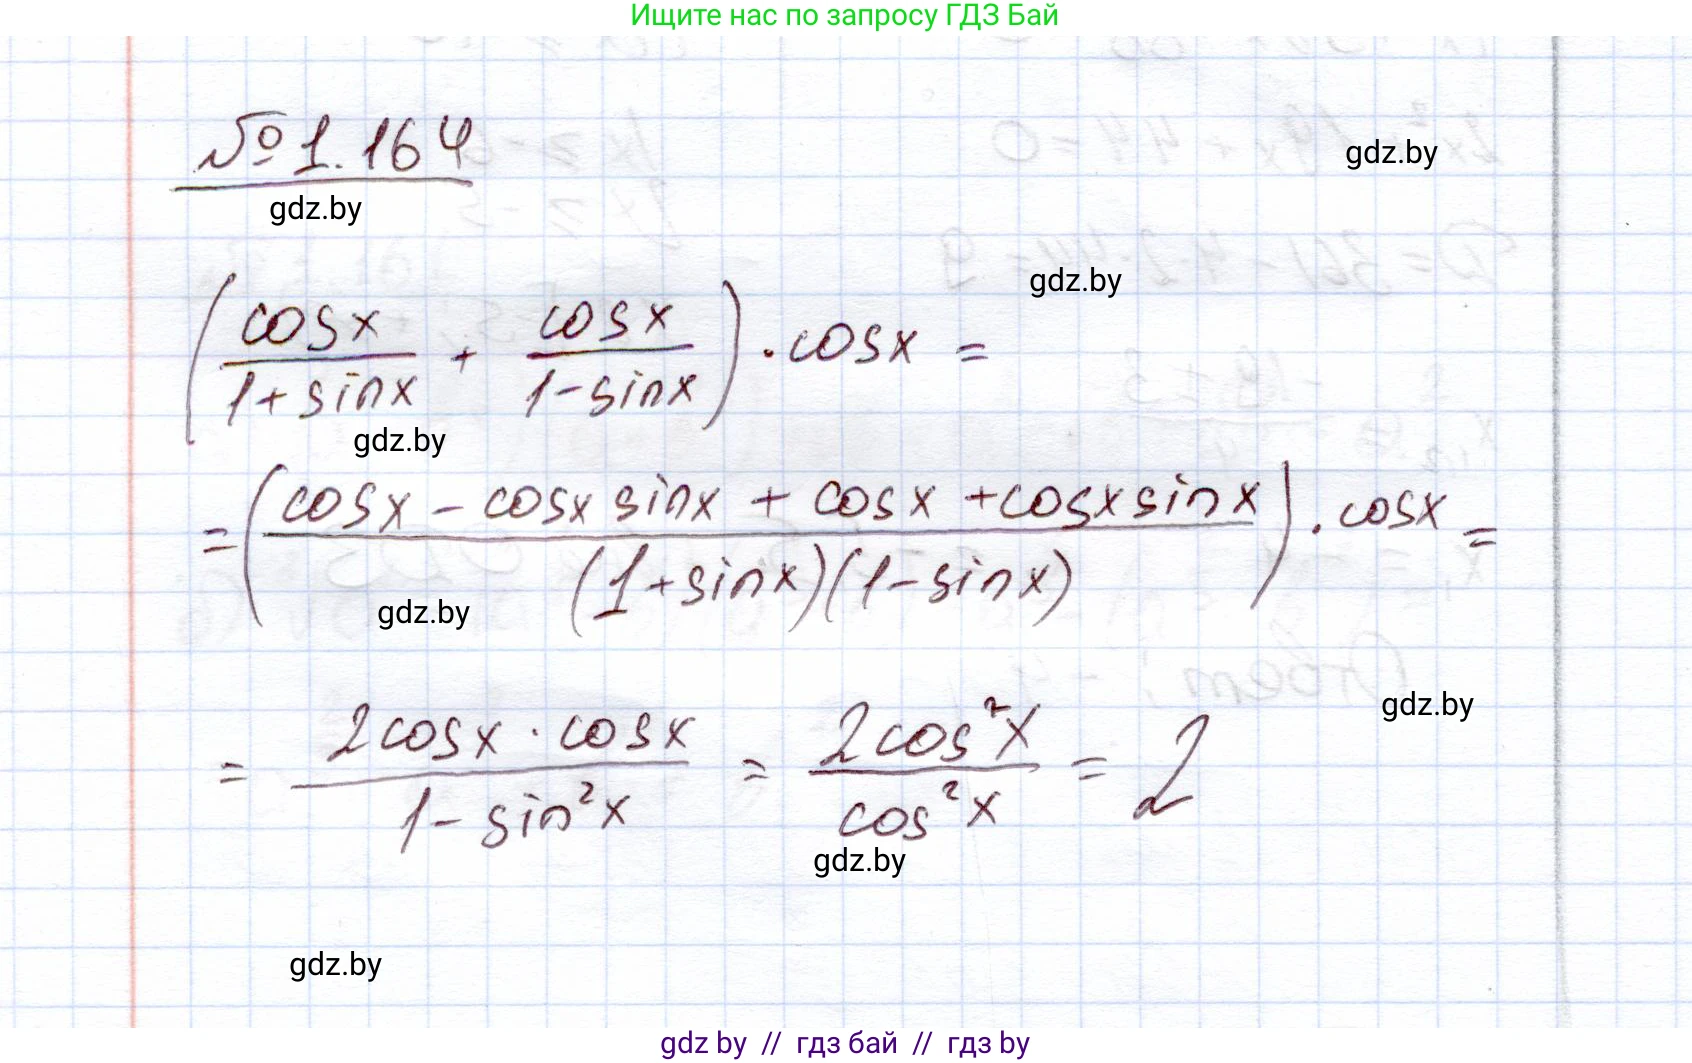 Ищите нас по запросу ГДЗ Бай
№1.164
gdz.by
gdz.by
gdz.by
(cosx/(1+sinx) + cosx/(1-sinx)) · cosx =
gdz.by
= ((cosx - cosx sinx + cosx + cosx sinx)/((1+sinx)(1-sinx))) · cosx =
gdz.by
gdz.by
= (2cosx · cosx)/(1-sin²x) = (2cos²x)/(cos²x) = 2
gdz.by
gdz.by
gdz by // гдз бай // гдз by